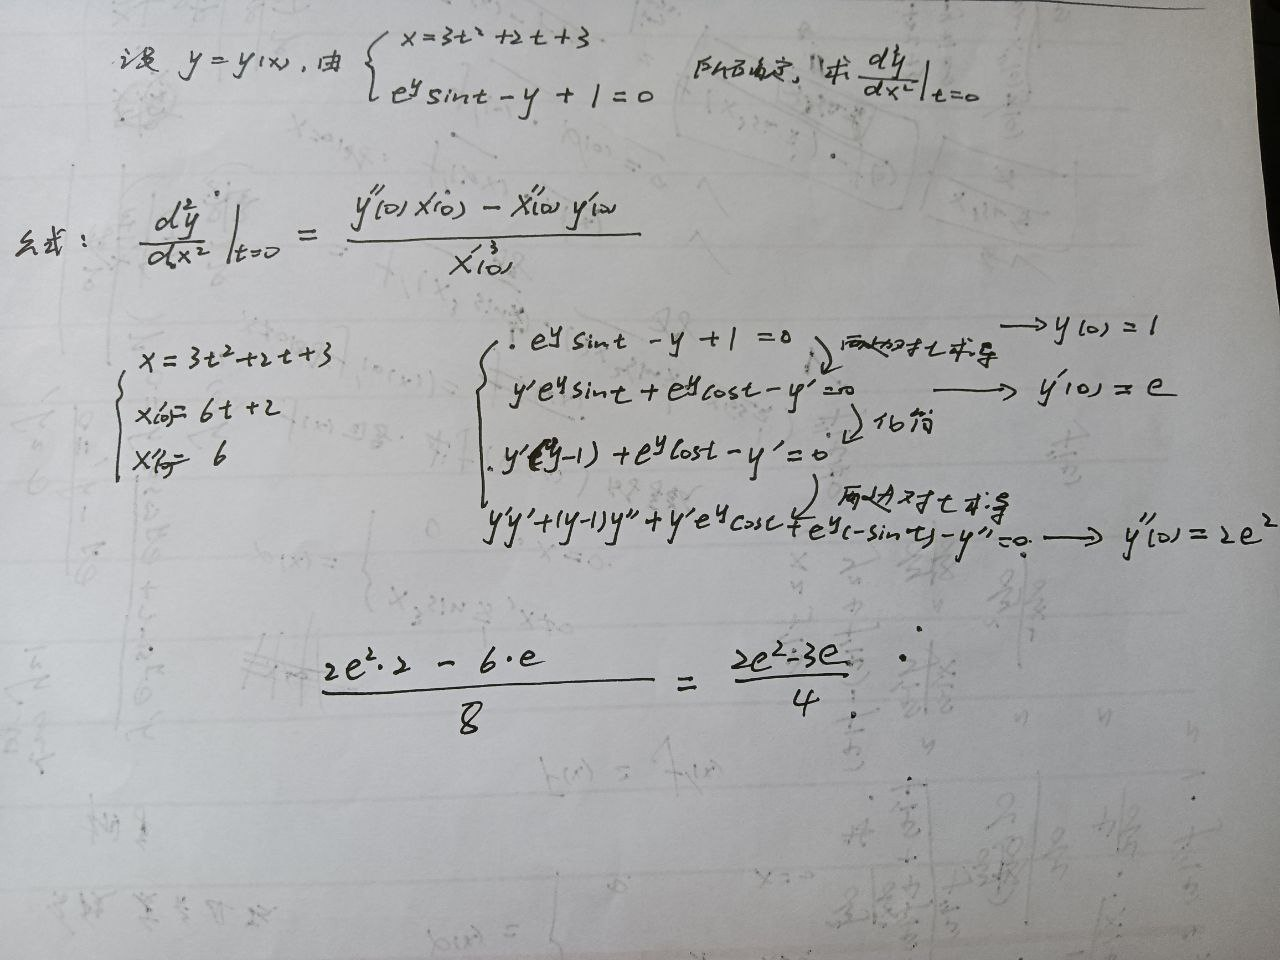 设 y=y(x), 由 { x=3t²+2t+3
e^y sint - y + 1 = 0
所确定, 求 d²y/dx² |t=0
公式: d²y/dx² |t=0 = (y''(0) x'(0) - x''(0) y'(0)) / x'(0)³
x = 3t²+2t+3
x'(0)= 6t+2
x''(0)= 6
e^y sint - y + 1 = 0 → y(0) = 1
两边对t求导
y'e^y sint + e^y cost - y' = 0 → y'(0) = e
化简
y'(y-1) + e^y cost - y' = 0
两边对t求导
y'y' + (y-1)y'' + y'e^y cost + e^y(-sint) - y'' = 0 → y''(0) = 2e²
(2e²·2 - 6·e) / 8 = (2e²-3e) / 4